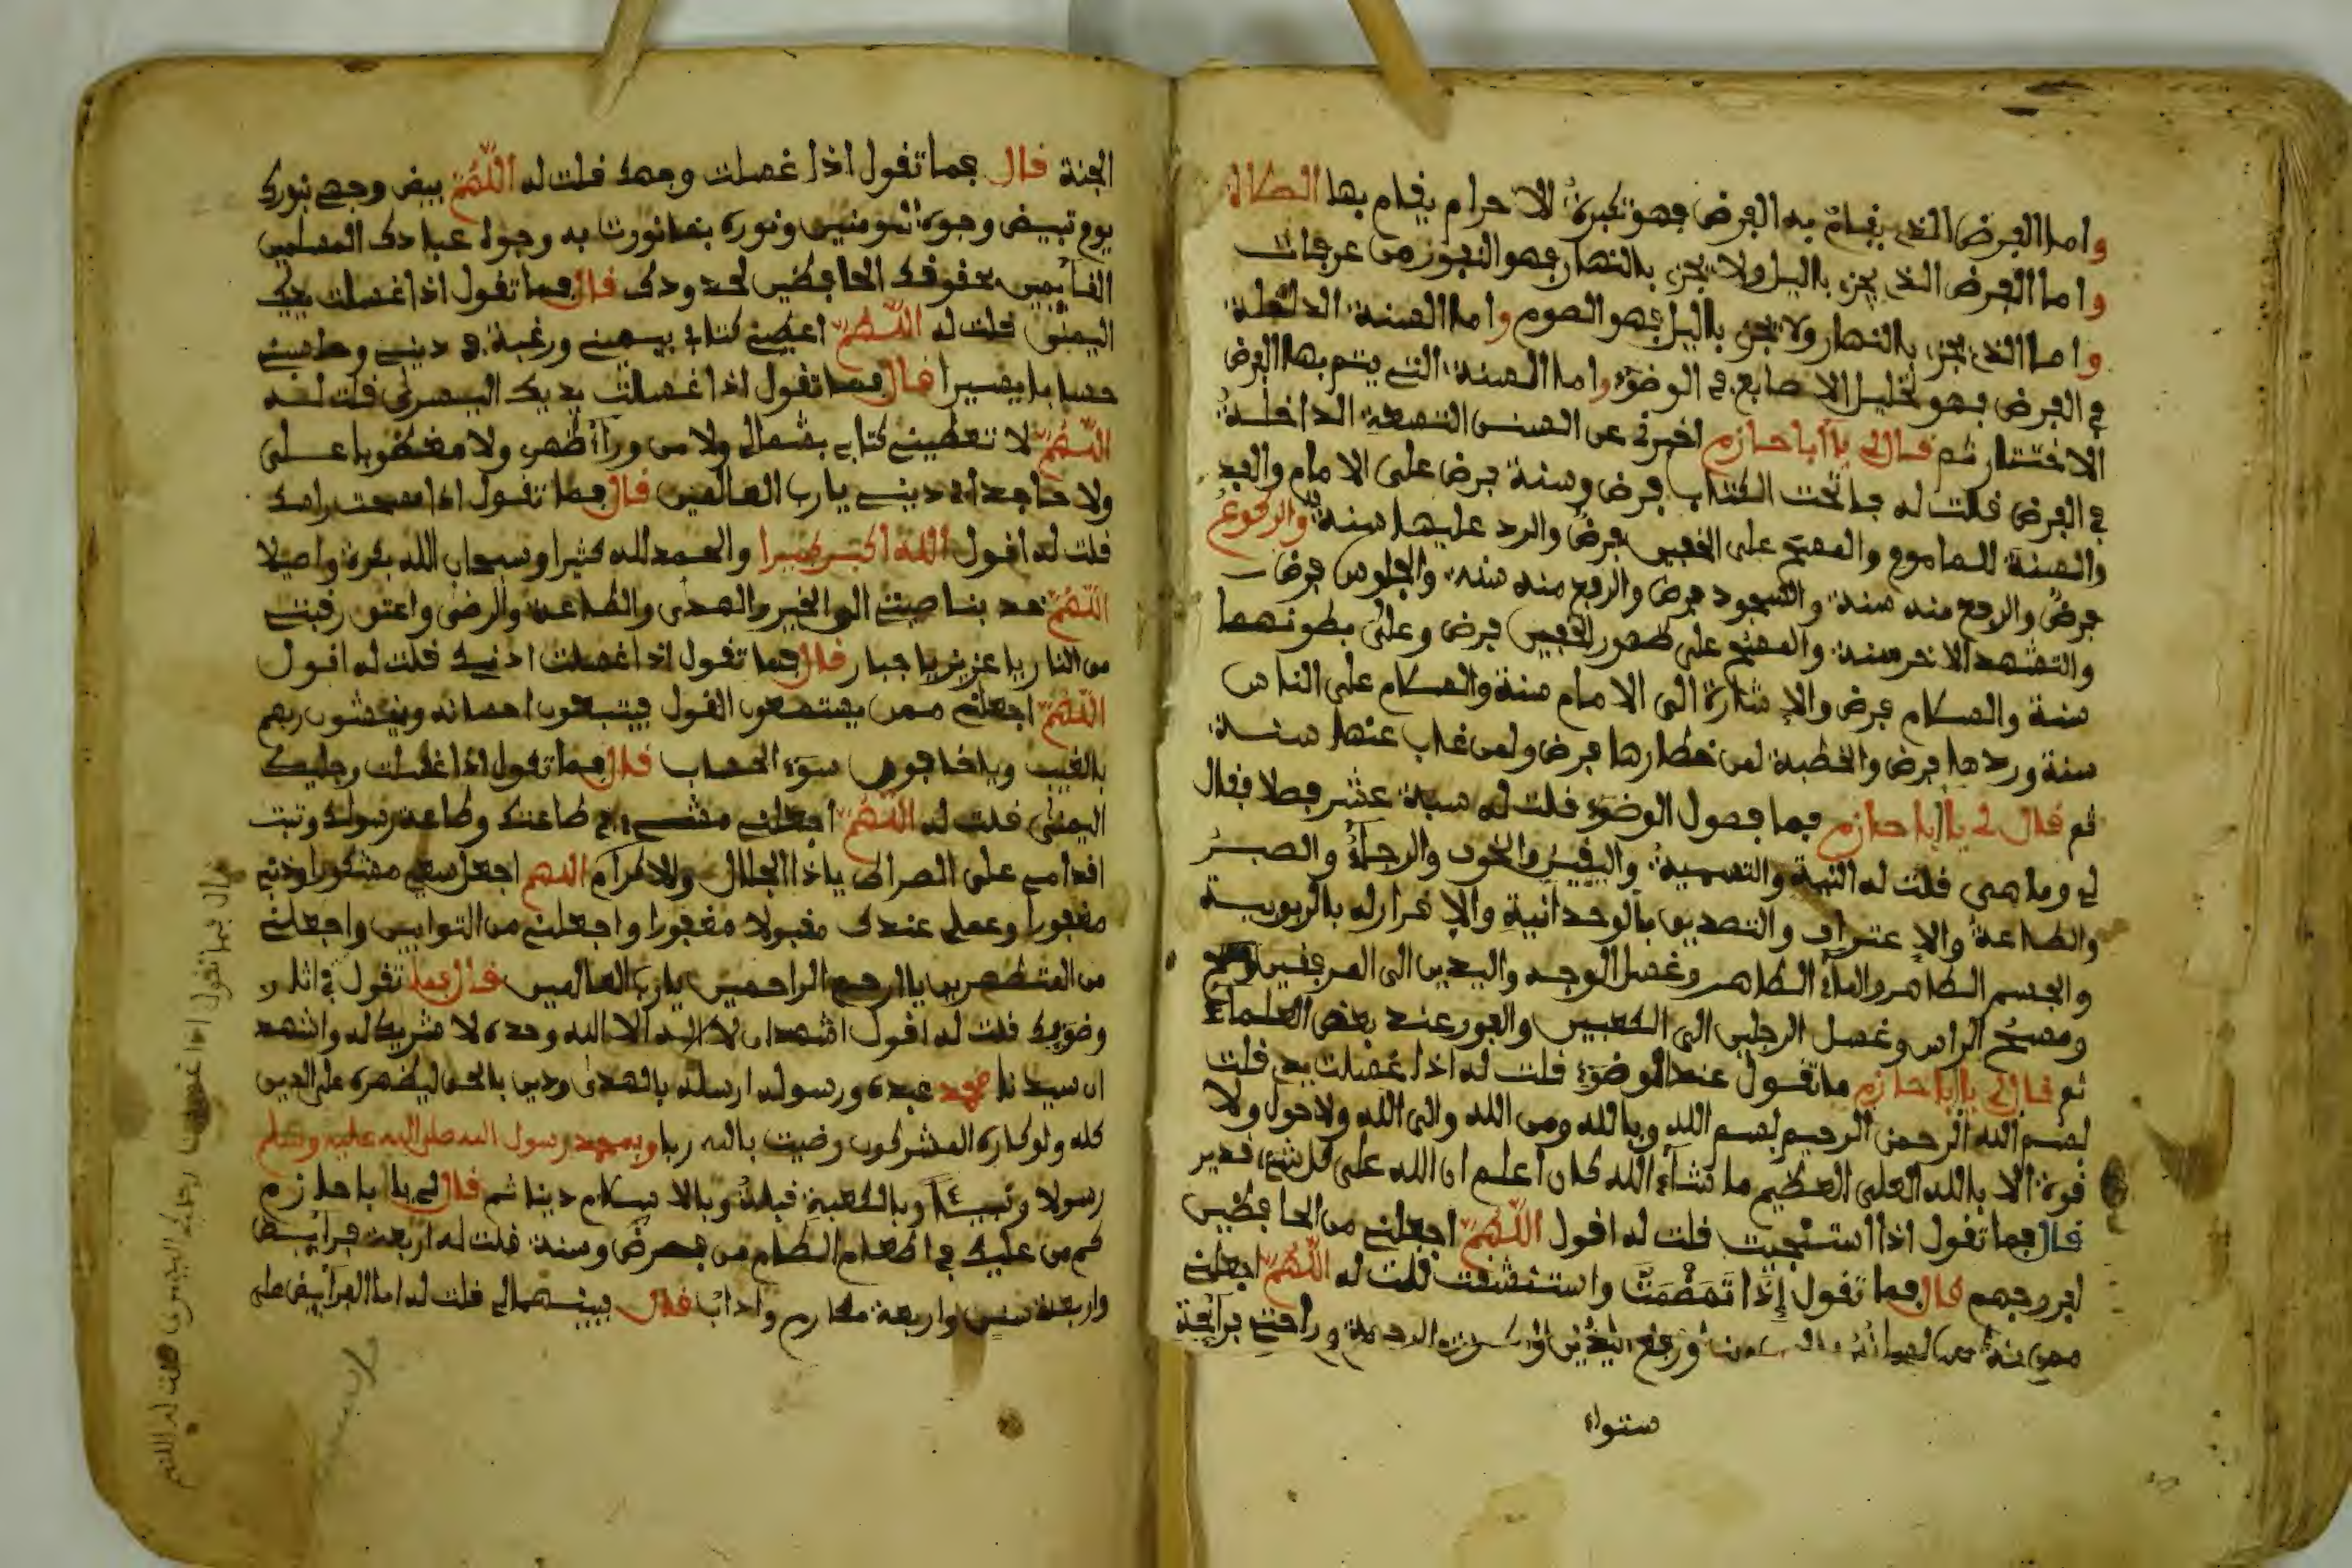 واما الفرض الذي يقام به الفرض فهو تكبيرة الاحرام يقام بها الصلاة
واما الفرض الذي يجزي باليل ولا يجزي بالنهار فهو النفور من عرفات
واما الذي يجزي بالنهار ولا يجزي باليل فهو الصوم واما السنة الداخلة
في الفرض فهو تخليل الاصابع في الوضوء واما السنة التي يتم بها الفرض
الاختتان ثم قال لي يا أبا حازم اخبرني عن السنن التسعة الداخلة
في الفرض فقلت له فاتحت الكتاب فرض وسنة فرض على الامام والفذ
والسنة للماموم والمسح على الخفين فرض والرد عليها سنة والركوع
فرض والرفع منه سنة والسجود فرض والرفع منه سنة والجلوس فرض
والتشهد الاخر سنة والمسح على ظهور الخفين فرض وعلى بطونهما
سنة والسلام فرض والاشارة الى الامام سنة والسلام على الناس
سنة وردها فرض والخطبة لمن حضرها فرض ولمن غاب عنها سنة
ثم قال لي يا أبا حازم فما فصول الوضوء قلت له سبة عشر فصلا فقال
لي وما هي قلت له النية والتسمية واليقين والخوف والرجاء والصبر
والطاعة والاعتراف والتصديق بالوحدانية والاقرار له بالربوبية
والجسم الطاهر والماء الطاهر وغسل الوجه واليدين الى المرفقين
ومسح الراس وغسل الرجلين الى الكعبين والفور عند بعض العلماء
ثم قال لي يا أبا حازم ما تقول عند الوضوء قلت له اذا غسلت يدي قلت
بسم الله الرحمن الرحيم بسم الله وبالله ومن الله والى الله ولا حول ولا
قوة الا بالله العلي العظيم ما شاء الله كان اعلم ان الله على كل شيء قدير
قال فما تقول اذا استنجيت قلت له اقول اللهم اجعلني من الحافظين
لفروجهم قال فما تقول إذا تمضمضت واستنشقت قلت له اللهم اجعلني
ستواء
الجنة قال فما تقول اذا غسلت وجهك قلت له اللهم بيض وجهي بنورك
يوم تبيض وجوه المومنين ونوره بما نورت به وجوه عبادك المسلمين
القايمين بحقوقك الحافظين لحدودك قال فما تقول اذا غسلت يدك
اليمنى قلت له اللهم اعطني كتابي بيميني ورغبة في ديني وحاسبني
حسابا يسيرا قال فما تقول اذا غسلت يديك اليسرى قلت له
اللهم لا تعطيني كتابي بشمال ولا من وراء ظهري ولا مغضوبا علي
ولا جاحدا في ديني يا رب العالمين قال فما تقول اذا مسحت راسك
قلت له اقول الله اكبر كبيرا والحمد لله كثيرا وسبحان الله بكرة واصيلا
اللهم خد بناصيتي الى الخير والهدى والطاعة والرضى واعتق رقبتي
من النار يا عزيز يا جبار قال فما تقول اذا غسلت اذنيك قلت له اقول
اللهم اجعلني ممن يستمعون القول فيتبعون احسانه ويخشون ربهم
بالغيب ويخافون سوء الحساب قال فما تقول اذا غسلت رجليك
اليمنى قلت له اللهم اجعلني مشي في طاعتك وطاعة رسولك وثبت
اقدامي على الصراط يا ذا الجلال والاكرام اللهم اجعل سعي مشكورا وذنبي
مغفورا وعملي عندك مقبولا مغفورا واجعلني من التوابين واجعلني
من المتطهرين يا ارحم الراحمين يا رب العالمين قال فما تقول في اثار
وضويك قلت له اقول اشهد ان لا اله الا الله وحده لا شريك له واشهد
ان سيدنا محمد عبده ورسوله ارسله بالهدى ودين بالحق ليظهره على الدين
كله ولو كاره المشركون رضيت بالله ربا وبمحمد رسول الله صلى الله عليه وسلم
رسولا ونبيئا وبالكعبة قبلة وبالاسلام دينا ثم قال لي يا أبا حازم
كم من عليك في اطعام الطعام من فرض وسنة قلت له اربعة فرايض
واربعة سنن واربعة مكارم واداب قال فبينهما لي قلت له اما الفرايض على
قال فما تقول اذا غسلت رجلك اليسرى قلت له اللهم